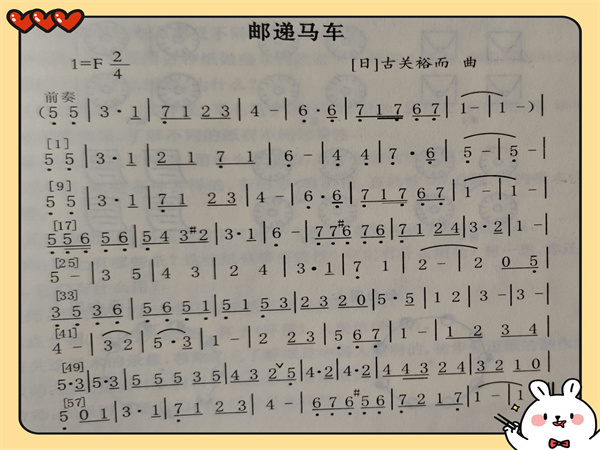 邮递马车
1=F 2/4
[日]古关裕而 曲
前奏
(5 5 | 3 · 1 | 7 1 2 3 | 4 - | 6 · 6 | 7 1 7 6 7 | 1 - | 1 - )|
[1]
5 5 | 3 · 1 | 2 1 7 1 | 6 - | 4 4 | 7 · 6 | 5 - | 5 - |
[9]
5 5 | 3 · 1 | 7 1 2 3 | 4 - | 6 · 6 | 7 1 7 6 7 | 1 - | 1 - |
[17]
5 5 6 5 6 | 5 4 3 #2 | 3 · 1 | 6 - | 7 7 #6 7 6 | 7 1 2 4 | 3 · 2 | 1 - |
[25]
5 - | 3 5 | 4 3 | 2 4 | 3 · 1 | 7 1 | 2 - | 2 0 5 |
[33]
3 5 3 6 | 5 6 5 1 | 5 1 5 3 | 2 3 2 0 | 5 · 5 | 1 2 | 3 - | 3 - |
[41]
4 - | 3 2 | 5 · 3 | 1 - | 2 2 3 | 5 6 7 | 1 - | 1 2 3 4 |
[49]
5 · 3 | 5 · 3 | 5 5 3 5 | 4 3 2 5 | 4 · 2 | 4 · 2 | 4 4 3 2 4 | 3 2 1 0 |
[57]
5 0 1 | 3 · 1 | 7 1 2 3 | 4 - | 6 7 6 #5 6 | 7 1 2 7 | 1 - | 1 -